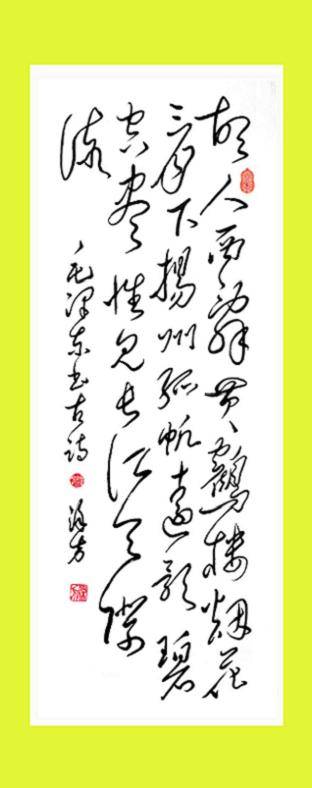 故人西辞黄鶴楼烟花
三月下揚州孤帆遠影碧
空尽惟见长江天际
流
毛泽东书古诗